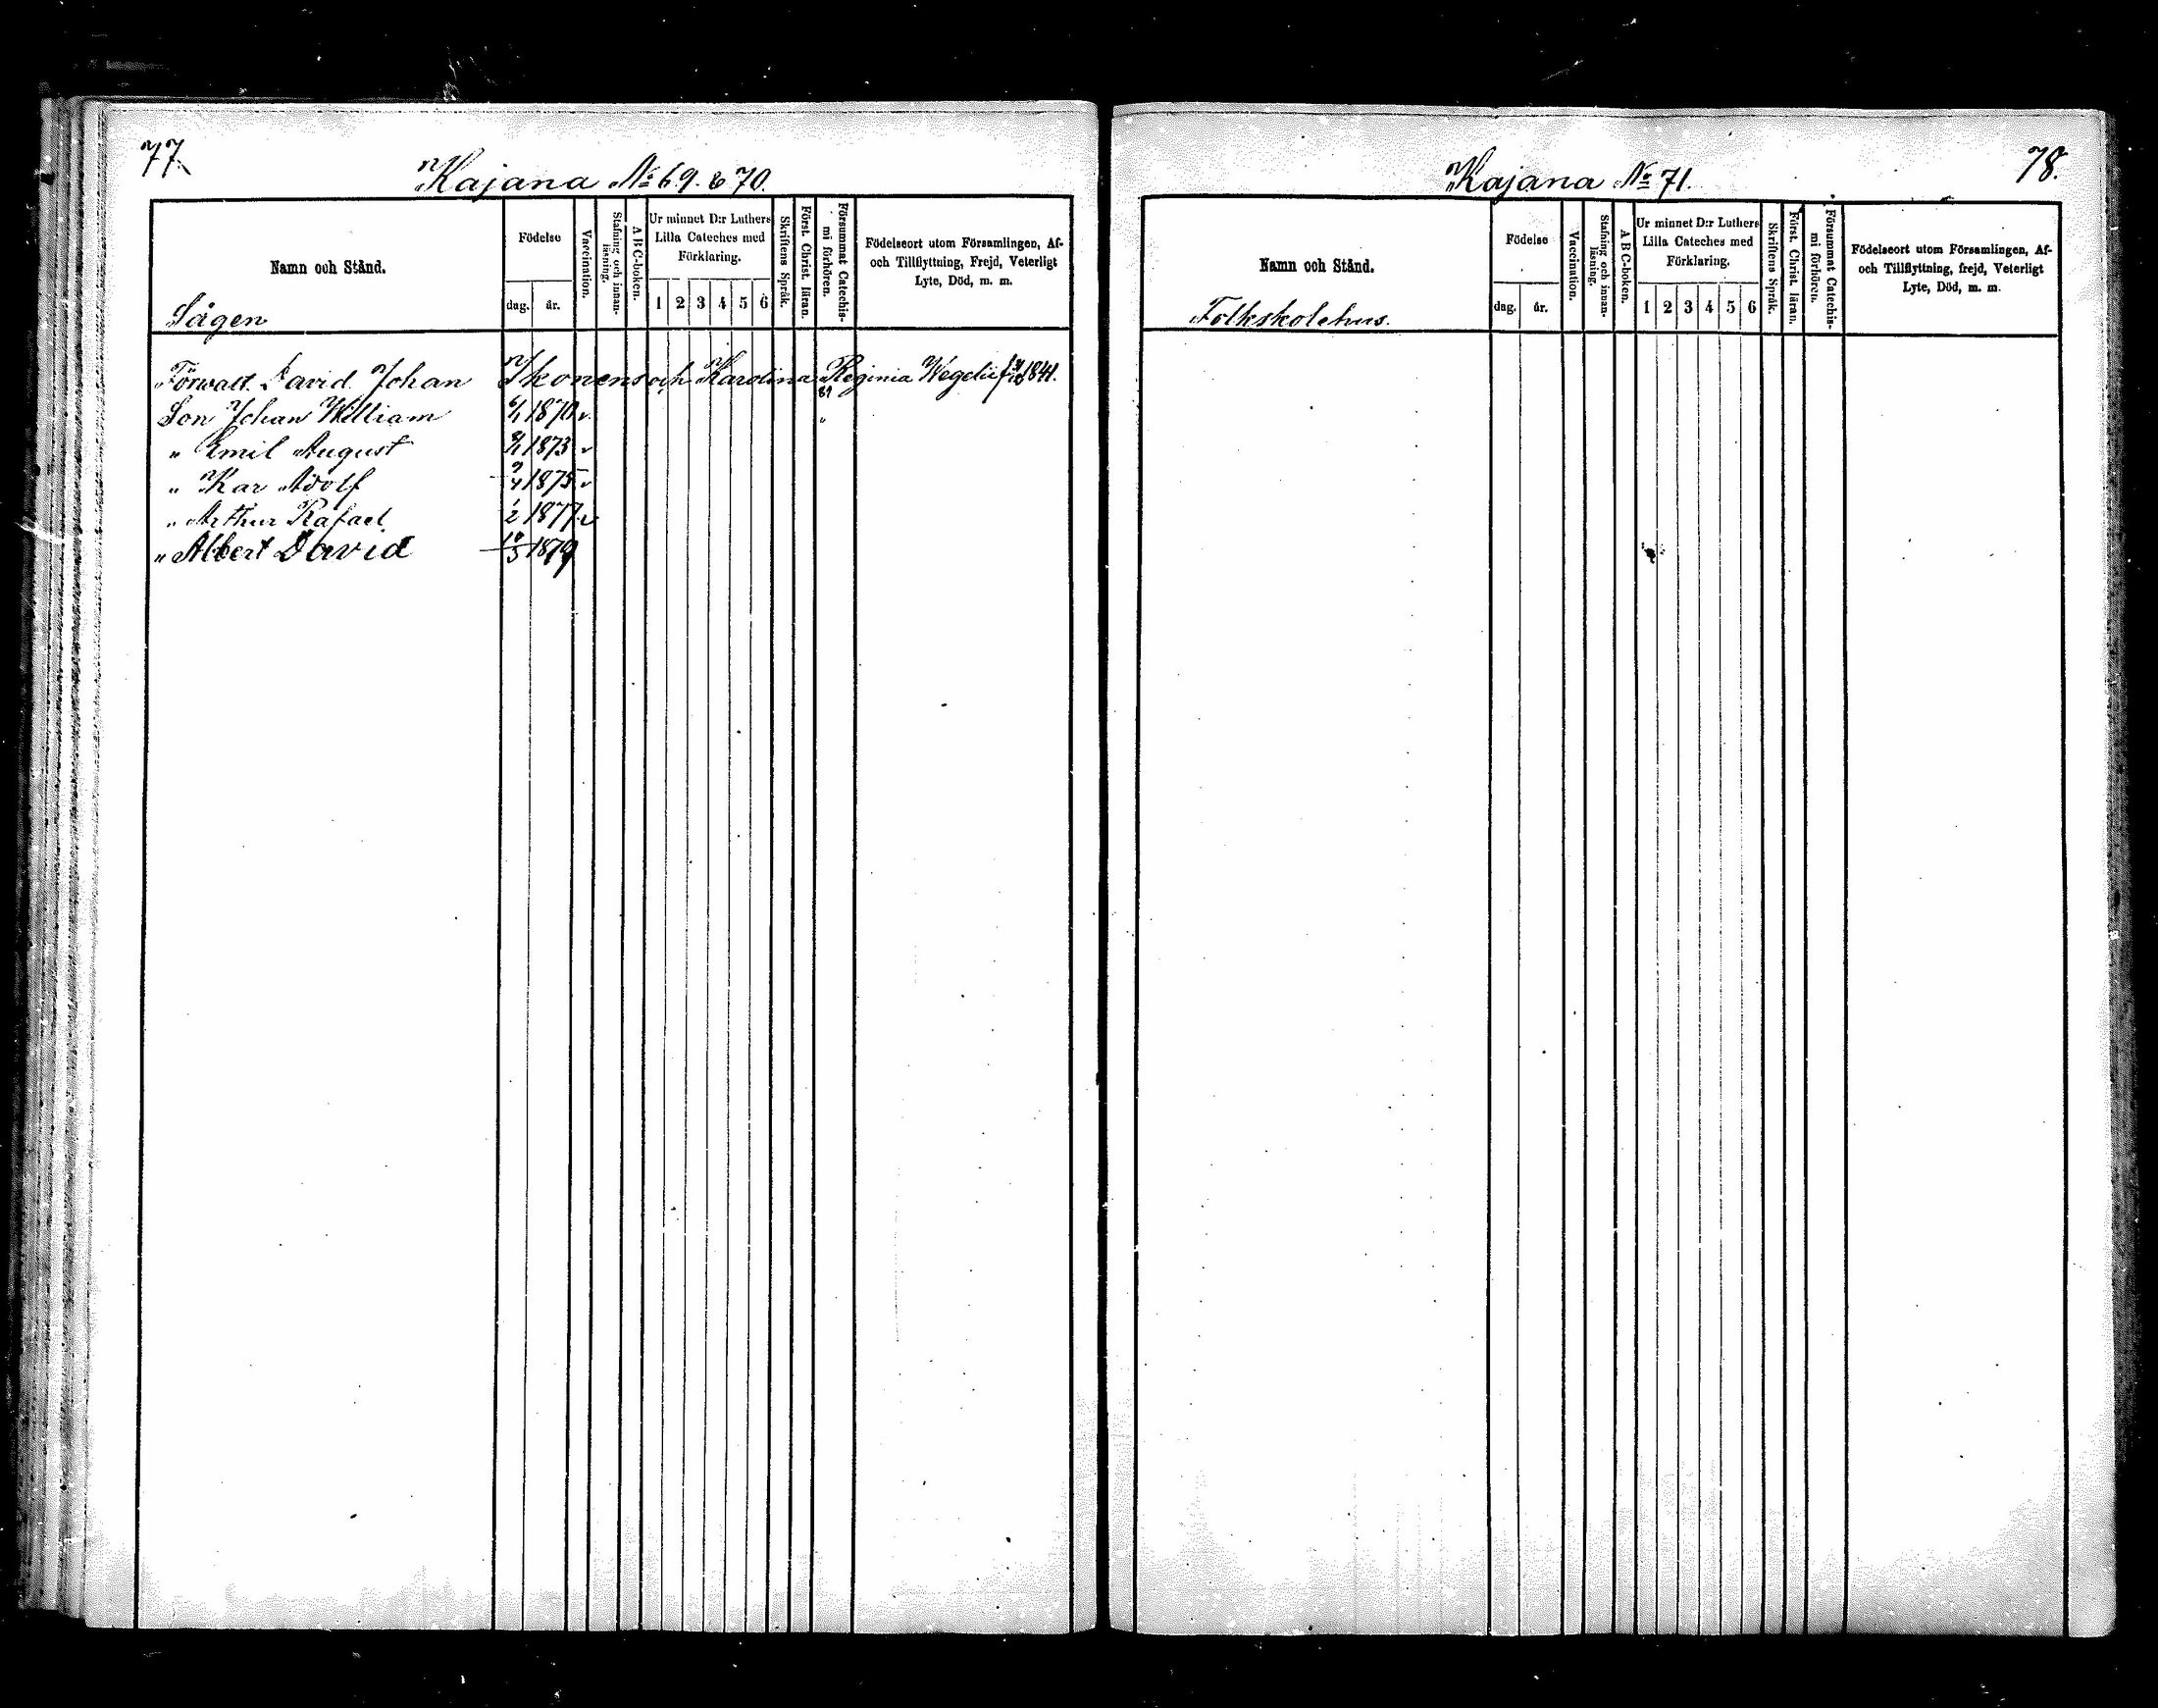 77.
Kajana No 69. & 70.
Namn och Stånd.
Födelse
dag. år.
Vaccination.
Stafning och innan-
läsning.
A B C-boken.
Ur minnet D:r Luthers
Lilla Cateches med
Förklaring.
1 2 3 4 5 6
Skriftens Språk.
Först. Christ. läran.
Försummat Catechis-
mi förhören.
Födelseort utom Församlingen, Af-
och Tillflyttning, Frejd, Veterligt
Lyte, Död, m. m.
Sågen
Förvalt. David Johan Ikonens och Karolina Reginia 1841.
81
Son Johan William 6/1 1870 v.
" Emil August 1873 v
" Kar Adolf 1875 v
" Arthur Rafael 1/2 1877 v
" Albert David 10/5 1879
78.
Kajana No 71.
Namn och Stånd.
Födelse
dag. år.
Vaccination.
Stafning och innan-
läsning.
A B C-boken.
Ur minnet D:r Luthers
Lilla Cateches med
Förklaring.
1 2 3 4 5 6
Skriftens Språk.
Först. Christ. läran.
Försummat Catechis-
mi förhören.
Födelseort utom Församlingen, Af-
och Tillflyttning, frejd, Veterligt
Lyte, Död, m. m.
Folkskolehus.